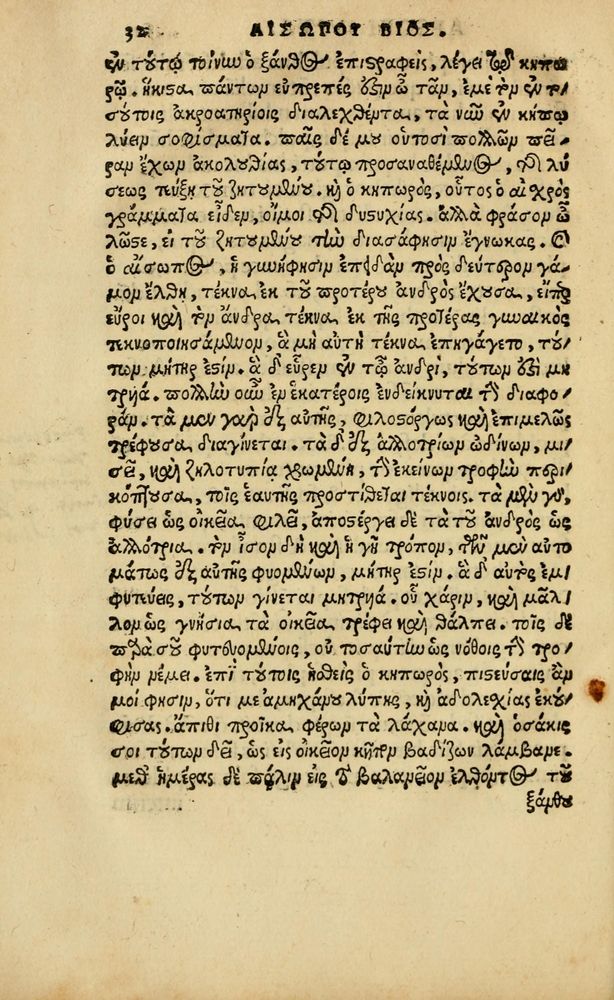 32 ΑΙΣΩΠΟΥ ΒΙΟΣ.
ἐν τούτῳ τοίνυν ὁ ξάνθος ἐπιστραφεὶς, λέγει τῷ κηπω
ρῷ. ἥκιστα πάντων εὐπρεπές ἐστιν ὦ τᾶν, ἐμὲ τὸν ἐν το
σούτοις ἀκροατηρίοις διαλεχθέντα, τὰ νῦν ἐν κήπῳ
λύειν σοφίσματα. παῖς δέ μοι οὑτοσὶ πολλῶν πεῖ
ραν ἔχων ἀκολουθίας, τούτῳ προσαναθέμενος, τῆς λύ
σεως τεύξῃ τοῦ ζητουμένου. καὶ ὁ κηπωρός, οὗτος ὁ αἰσχρὸς
γράμματα εἶδεν, οἴμοι τῆς δυστυχίας. ἀλλὰ φράσον ὦ
λῷστε, εἰ τοῦ ζητουμένου τὴν διασάφησιν ἔγνωκας. καὶ
ὁ αἴσωπος, ἡ γυνή φησιν ἐπειδὰν πρὸς δεύτερον γά
μον ἔλθῃ, τέκνα ἐκ τοῦ προτέρου ἀνδρὸς ἔχουσα, εἴπερ
εὕροι καὶ τὸν ἄνδρα τέκνα ἐκ τῆς προτέρας γυναικὸς
τεκνοποιησάμενον, ἃ μὴ αὐτὴ τέκνα ἐπηγάγετο, τού
των μήτηρ ἐστίν. ἃ δ' εὗρεν ἐν τῷ ἀνδρί, τούτων ἐστὶ μη
τρυιά. πολλὴν οὖν ἐν ἑκατέροις ἐνδείκνυται τὴν διαφο
ράν. τὰ μὲν γὰρ ἐξ αὐτῆς, φιλοστόργως καὶ ἐπιμελῶς
τρέφουσα διαγίνεται. τὰ δ' ἐξ ἀλλοτρίων ὠδίνων, μι
σεῖ, καὶ ζηλοτυπίᾳ χρωμένη, τὴν ἐκείνων τροφὴν περι
κόπτουσα, τοῖς ἑαυτῆς προστίθεται τέκνοις. τὰ μὲν γὰρ,
φύσει ὡς οἰκεῖα φιλεῖ, ἀποστέργει δὲ τὰ τοῦ ἀνδρὸς ὡς
ἀλλότρια. τὸν ἴσον δὴ καὶ ἡ γῆ τρόπον, τῶν μὲν αὐτο
μάτως ἐξ αὐτῆς φυομένων, μήτηρ ἐστίν. ἃ δ' αὐτὸς ἐμ
φυτεύεις, τούτων γίνεται μητρυιά. οὗ χάριν, καὶ μᾶλ
λον ὡς γνήσια τὰ οἰκεῖα τρέφει καὶ θάλπει. τοῖς δὲ
παρὰ σοῦ φυτευομένοις, οὐ τοσαύτην ὡς νόθοις τὴν τρο
φὴν νέμει. ἐπὶ τούτοις ἡσθεὶς ὁ κηπωρός, πιστεύσαις ἄν
μοί φησιν, ὅτι με ἀμηχάνου λύπης, καὶ ἀδολεσχίας ἐκού
φισας. ἄπιθι προῖκα φέρων τὰ λάχανα. καὶ ὁσάκις
σοι τούτων δεῖ, ὡς εἰς οἰκεῖον κῆπον βαδίζων λάμβανε.
μεθ' ἡμέρας δὲ πάλιν εἰς τὸ βαλανεῖον ἐλθόντος τοῦ
ξάνθου